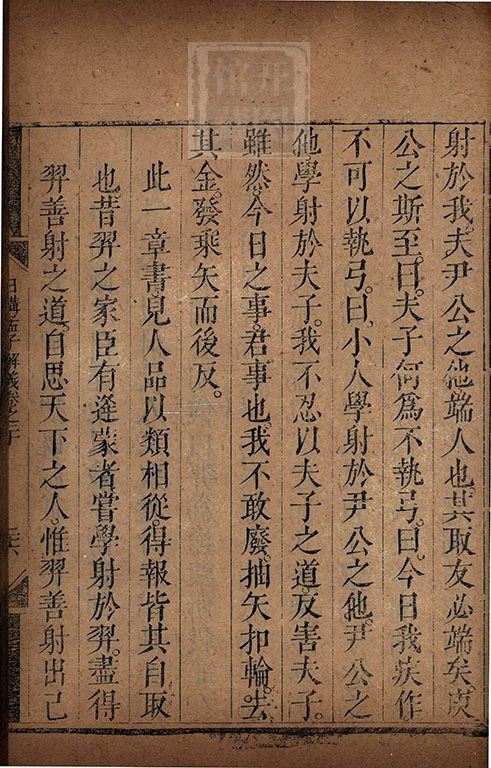 射於我。夫尹公之他端人也。其取友必端矣。庾
公之斯至。曰。夫子何爲不執弓。曰。今日我疾作。
不可以執弓。曰。小人學射於尹公之他。尹公之
他學射於夫子。我不忍以夫子之道。反害夫子。
雖然。今日之事。君事也。我不敢廢。抽矢扣輪。去
其金。發乘矢而後反。
此一章書。見人品以類相從。得報皆其自取
也。昔羿之家臣有逄蒙者。嘗學射於羿。盡得
羿善射之道。自思天下之人。惟羿善射出己
日講孟子解義卷之二十